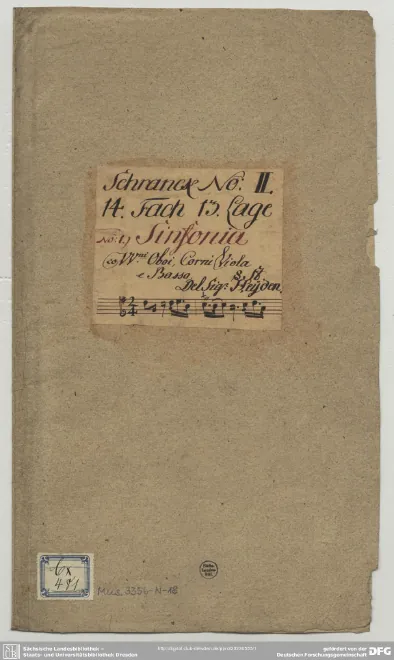 Schranck No: II.
14. Fach 13. Lage
No: 1.) Sinfonia
co VV.ni Oboi, Corni Viola
e Basso
Del Sigr: Heÿden.
2/4
6x
491
Mus. 3356-N-18
Sächsische Landesbibliothek –
Staats- und Universitätsbibliothek Dresden
gefördert von der
Deutschen Forschungsgemeinschaft
DFG